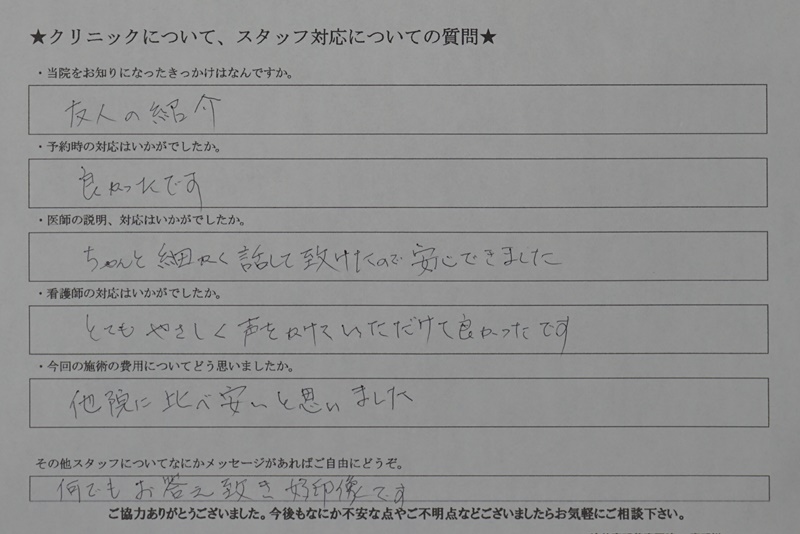 ★クリニックについて、スタッフ対応についての質問★
・当院をお知りになったきっかけはなんですか。
友人の紹介
・予約時の対応はいかがでしたか。
良かったです
・医師の説明、対応はいかがでしたか。
ちゃんと細かく話して致けたので安心できました
・看護師の対応はいかがでしたか。
とてもやさしく声をかけていただけて良かったです
・今回の施術の費用についてどう思いましたか。
他院に比べ安いと思いました
その他スタッフについてなにかメッセージがあればご自由にどうぞ。
何でもお答え致き好印像です
ご協力ありがとうございました。今後もなにか不安な点やご不明点などございましたらお気軽にご相談下さい。